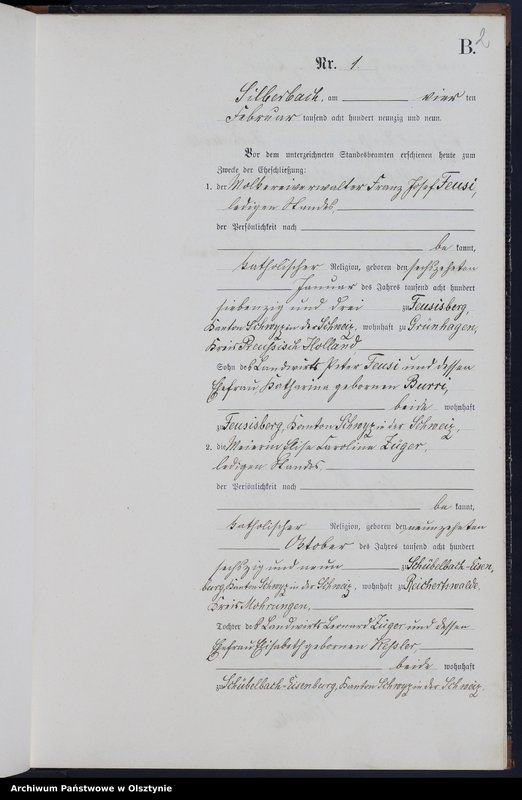 B. 2
Nr. 1
Silberbach, am vier ten
Februar tausend acht hundert neunzig und neun.
Vor dem unterzeichneten Standesbeamten erschienen heute zum
Zwecke der Eheschließung:
1. der Molkereiverwalter Franz Josef Feusi,
ledigen Standes,
der Persönlichkeit nach
be kannt,
katholischer Religion, geboren den sechszehnten
Januar des Jahres tausend acht hundert
siebenzig und drei zu Feusisberg,
Kanton Schwyz in der Schweiz, wohnhaft zu Grünhagen,
Kreis Preußisch Holland,
Sohn des Landwirts Peter Feusi und dessen
Ehefrau Katharina geborenen Burri,
beide wohnhaft
zu Feusisberg, Kanton Schwyz in der Schweiz,
2. die Meierin Elise Caroline Züger,
ledigen Standes
der Persönlichkeit nach
be kannt,
katholischer Religion, geboren den neunzehnten
Oktober des Jahres tausend acht hundert
sechszig und neun zu Schübelbach-Eisen,
burg, Kanton Schwyz in der Schweiz, wohnhaft zu Reichertswalde
Kreis Mohrungen,
Tochter des Landwirts Leonard Züger und dessen
Ehefrau Elisabeth geborenen Keßler,
beide wohnhaft
zu Schübelbach-Eisenburg, Kanton Schwyz in der Schweiz.
Archiwum Państwowe w Olsztynie